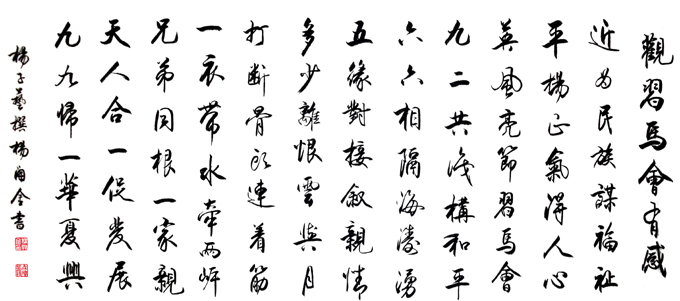 觀習馬會有感
近为民族謀福祉
平楊正氣得人心
英風亮節習馬會
九二共識構和平
六六相隔海濤湧
五緣對接敘親情
多少離恨雲與月
打斷骨頭連着筋
一衣帶水牽兩岸
兄弟同根一家親
天人合一促發展
九九歸一華夏興
楊子藝撰楊金書